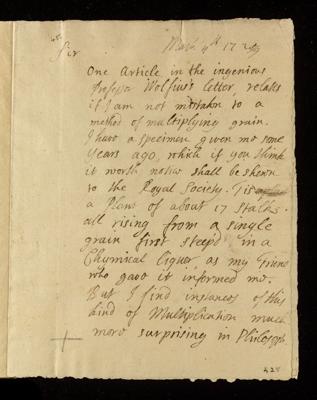 Sir
One Article in the ingenious
Professor Wolfius's letter, relates
if I am not mistaken to a
method of multiplying grain.
I have a specimen given me some
years ago, which if you think
it worth notice shall be shewn
to the Royal Society. Tis
a Plant of about 17 Stalks
all rising from a single
grain first steep'd in a
Chymical Liquor as my Friend
who gave it informed me.
But I find instances of this
kind of Multiplication much
more surprising in Philosoph